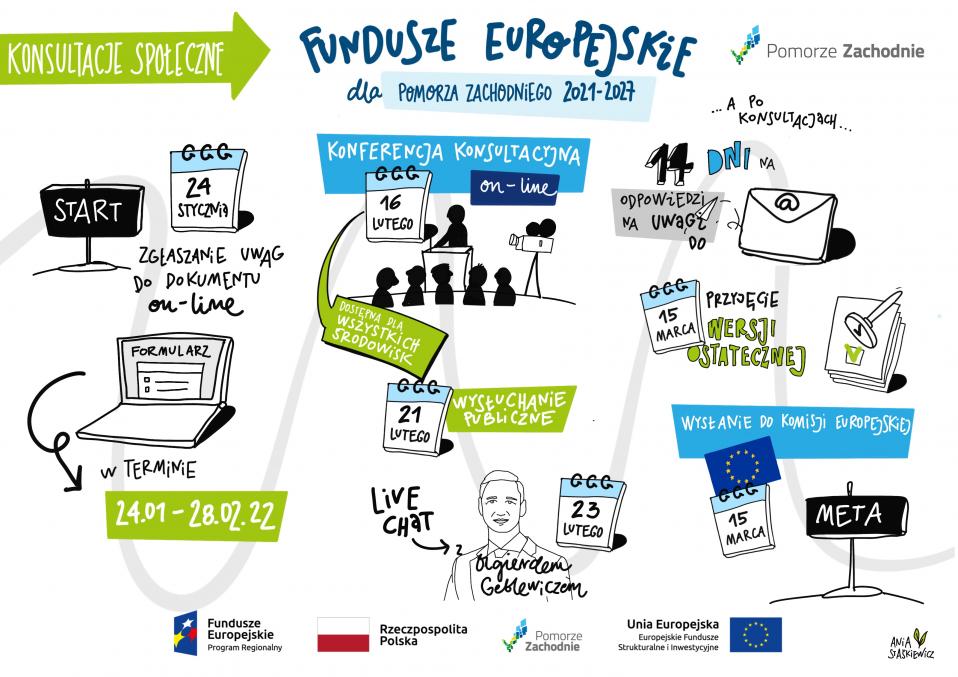 KONSULTACJE SPOŁECZNE
FUNDUSZE EUROPEJSKIE
dla POMORZA ZACHODNIEGO 2021-2027
Pomorze Zachodnie
START
24
STYCZNIA
ZGŁASZANIE UWAG
DO DOKUMENTU
on-line
FORMULARZ
W TERMINIE
24.01 - 28.02.22
KONFERENCJA KONSULTACYJNA
on-line
16
LUTEGO
DOSTĘPNA DLA
WSZYSTKICH
ŚRODOWISK
21
LUTEGO
WYSŁUCHANIE
PUBLICZNE
LIVE
CHAT
z
Olgierdem
Geblewiczem
23
LUTEGO
...A PO
KONSULTACJACH...
14 DNI NA
ODPOWIEDZI
NA UWAGI
DO
@
15
MARCA
PRZYJĘCIE
WERSJI
OSTATECZNEJ
WYSŁANIE DO KOMISJI EUROPEJSKIEJ
15
MARCA
META
Fundusze
Europejskie
Program Regionalny
Rzeczpospolita
Polska
Pomorze
Zachodnie
Unia Europejska
Europejskie Fundusze
Strukturalne i Inwestycyjne
ANIA
STAŚKIEWICZ